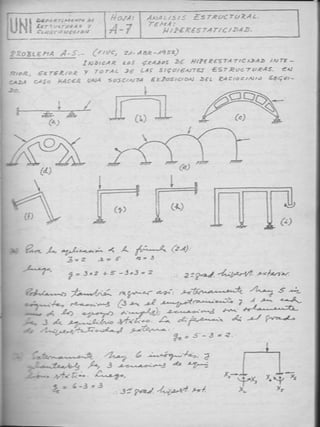 UNI DEPARTAMENTO DE
ESTRUCTURAS Y
CONSTRUCCION
HOJA:
A-7
ANALISIS ESTRUCTURAL
TEMA:
HIPERESTATICIDAD.
PROBLEMA A-5.- (FIUC, 21-ABR-1958)
INDICAR LOS GRADOS DE HIPERESTATICIDAD INTE-
RIOR, EXTERIOR Y TOTAL DE LAS SIGUIENTES ESTRUCTURAS. EN
CADA CASO HACER UNA SUSCINTA EXPOSICION DEL RACIOCINIO SEGUI-
DO.
(a)
(b)
(c)
(d)
(e)
(f)
(g)
(h)
(i)
(a) Para la aplicación de la fórmula (2A):
b=2 n=3
luego,
g = 3×2 + 5 - 3×3 = 2
2º grad. hiperst. exterior.
Podríamos también razonar así: externamente hay 5 in-
cógnitas reacciones (3 en el empotramiento y 1 en cada
uno de los apoyos simples); ecuaciones son solamente
las 3 de equilibrio estático. La diferencia da el grado
de hiperestaticidad externa.
= 5 - 3 = 2.
(b) Externamente hay 6 incógnitas y
3 ecuaciones de equi-
librio estático. Luego,
= 6 - 3 = 3
3º grad. hiperst. ext.